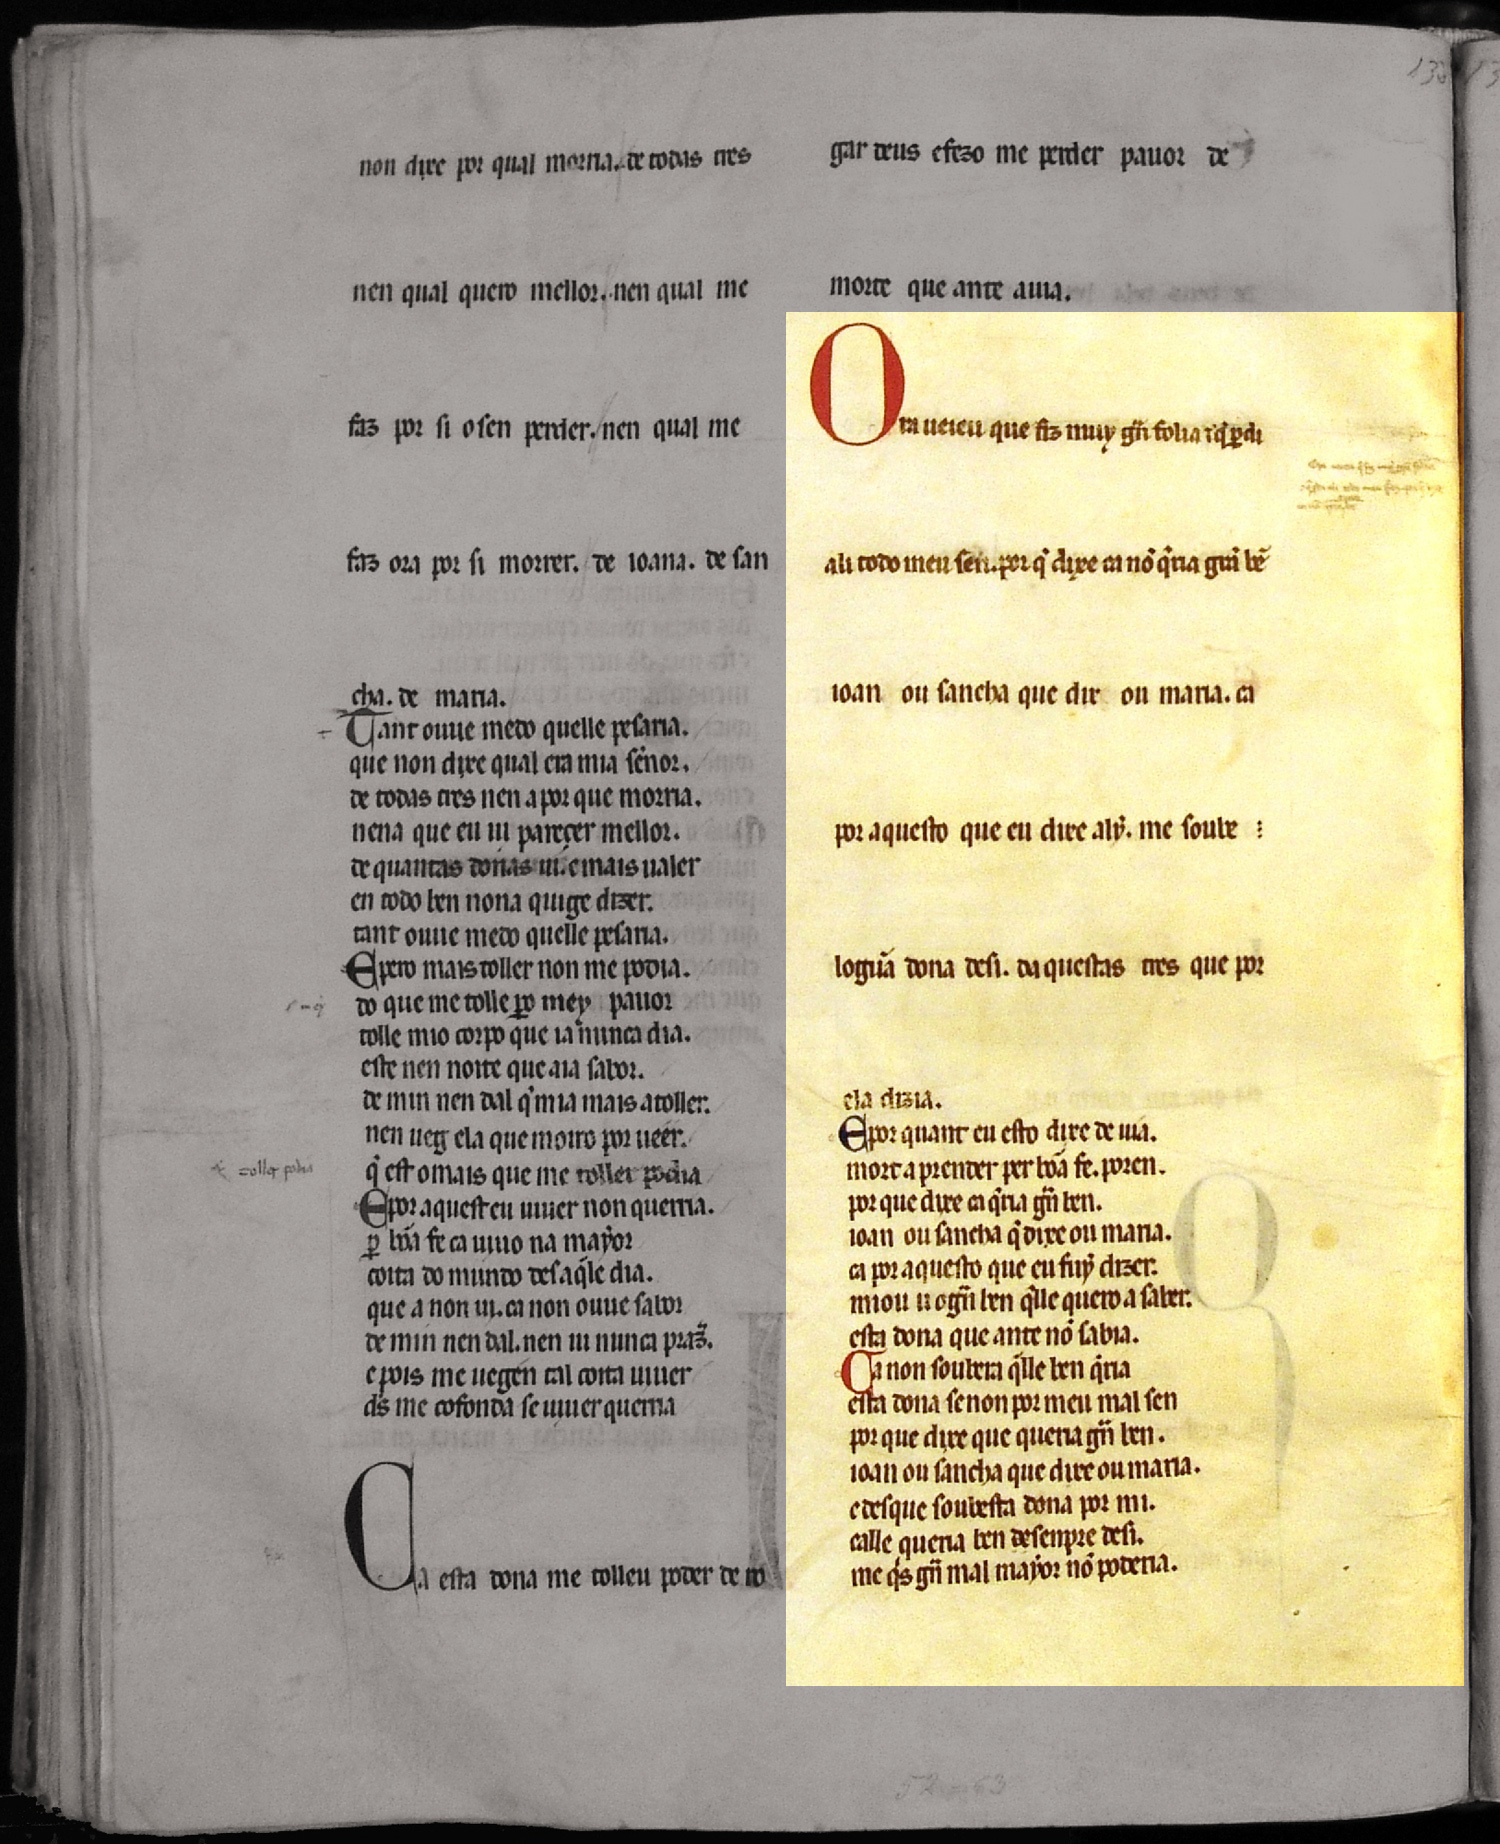 non dixe por qual morria. de todas tres
nen qual quero mellor. nen qual me
faz por si o sen perder. nen qual me
faz ora por si morrer. de ioana. de san
cha. de maria.
Tant ouue medo quelle pesaria.
que non dixe qual era mia sẽnor.
de todas tres nen a por que morria.
nena que eu ui pareçer mellor.
de quantas donas ui. e mais ualer
en todo ben nona quige dizer.
tant ouue medo quelle pesaria.
Epero mais toller non me podia.
do que me tolle ꝑo mey pauor
tolle mio corpo que ia nunca dia.
este nen noite que aia sabor.
de min nen dal q̇ mia mais a toller.
nen ueg ela que moiro por ueer.
q̇ est o mais que me toller podia
Epor aquest eu uiuer non querria.
ꝑ bõa fe ca uiuo na mayor
coita do mundo des aq̃le dia.
que a non ui. ca non ouue sabor
de min nen dal. nen ui nunca praz̃.
e pois me uegen tal coita uiuer
d̃s me cofonda se uiuer querria
Ca esta dona me tolleu poder de ro
gar deus e fezo me perder pauor de
morte que ante auia.
Ora uei eu que fiz muy gñ folia ⁊ q̃ ꝑdi
ali todo meu sen. por q̃ dixe ca nõ q̃ria grã bẽ
ioan ou sancha que dix ou maria. ca
por aquesto que eu dixe aly. me soube
logu̾a dona desi. daquestas tres que por
ela dizia.
Epor quant eu esto dixe de uia.
mort a prender per bõa fe. poren.
por que dixe ca q̃ria gñ ben.
ioan ou sancha q̃ dixe ou maria.
ca por aquesto que eu fuy dizer.
miou u o gñ ben q̃lle quero a saber.
esta dona que ante nõ sabia.
Ca non soubera q̃lle ben q̃ria
esta dona se non por meu mal sen
por que dixe que queria gñ ben.
ioan ou sancha que dixe ou maria.
e desque soubesta dona por mi.
calle queria ben de senpre desi.
me q̃s gñ mal mayor nõ poderia.